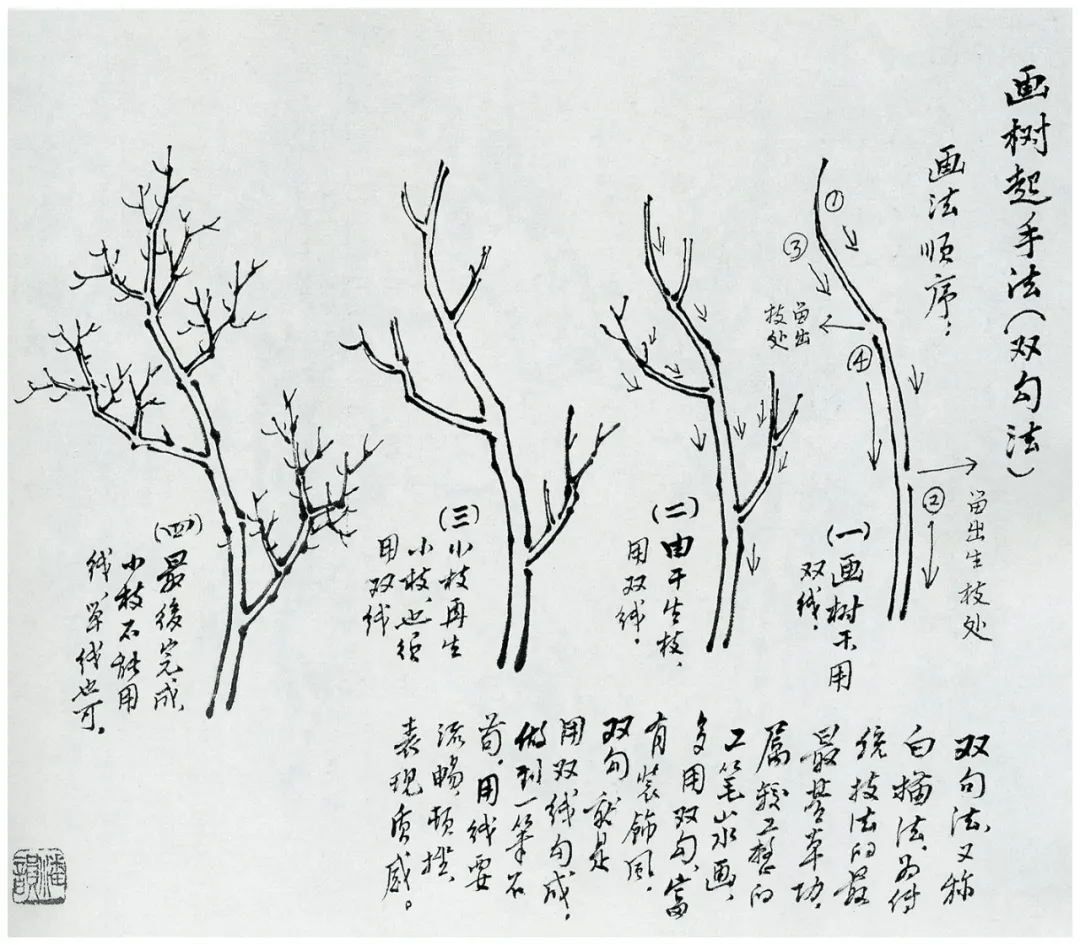 画树起手法(双勾法)
画法顺序:
①
③
留出
枝处
④
②
留出生枝处
(一)画树木用
双线.
(二)由干生枝,
用双线.
(三)小枝再生
小枝,也须
用双线
(四)最後完成,
小枝不能用
线,单线也可.
双勾法,又称
白描法,为传
统技法的最
最基本功,
属较工整的
工笔山水画,
多用双勾,富
有装饰风,
双勾,就是
用双线勾成,
做到一笔不
苟,用线要
流畅,顿挫,
表现质感。